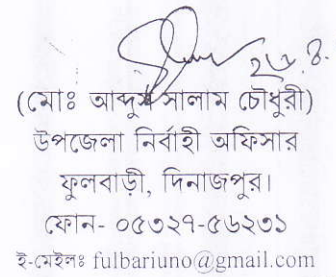 ২৬.৪.
(মোঃ আব্দুস সালাম চৌধুরী)
উপজেলা নির্বাহী অফিসার
ফুলবাড়ী, দিনাজপুর।
ফোন- ০৫৩২৭-৫৬২৩১
ই-মেইলঃ fulbariuno@gmail.com